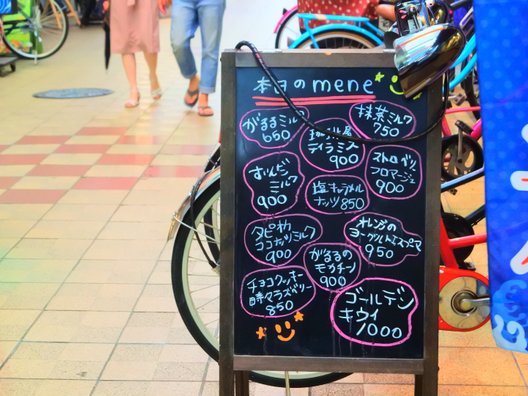 本日のmene
がるるミルク
650
抹茶ミルク
750
ティラミス
900
ストロベリー
フロマージュ
900
ずんだ
ミルク
900
塩キャラメル
ナッツ 850
オレンジの
ヨーグルトエスプーマ
950
タピオカ
ココナッツミルク
900
がるるの
モカチーノ
900
チョコクッキー
酵マラズベリー
850
ゴールデン
キウイ
1000